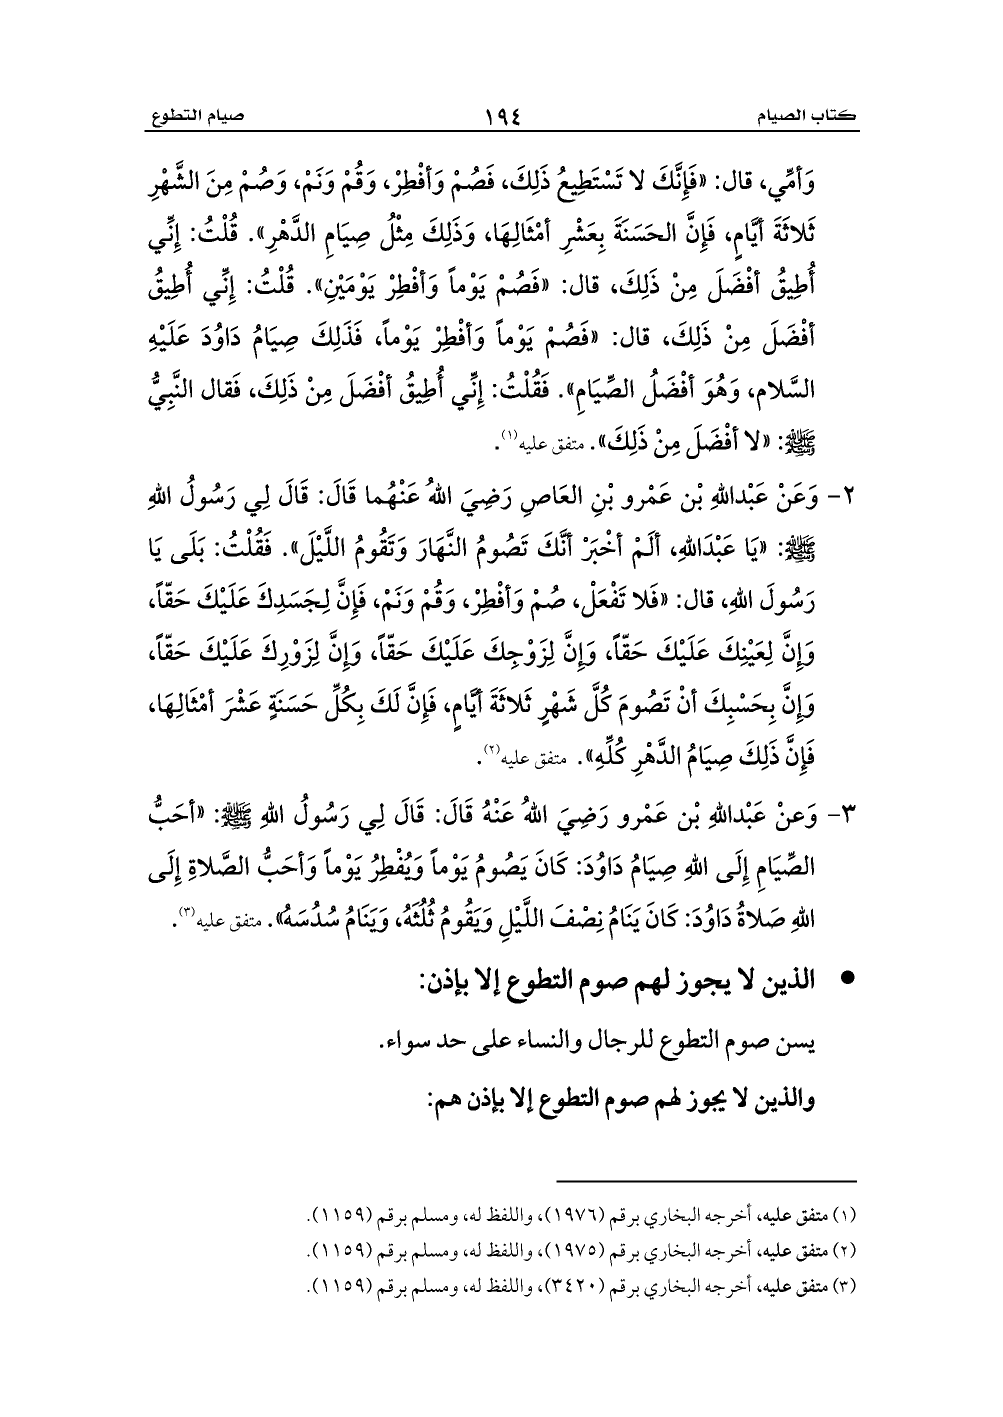 كتاب الصيام ١٩٤ صيام التطوع
وَأمِّي، قال: «فَإِنَّكَ لا تَسْتَطِيعُ ذَلِكَ، فَصُمْ وَأفْطِرْ، وَقُمْ وَنَمْ، وَصُمْ مِنَ الشَّهْرِ
ثَلاثَةَ أيَّامٍ، فَإِنَّ الحَسَنَةَ بِعَشْرِ أمْثَالِهَا، وَذَلِكَ مِثْلُ صِيَامِ الدَّهْرِ». قُلْتُ: إنِّي
أُطِيقُ أفْضَلَ مِنْ ذَلِكَ، قال: «فَصُمْ يَوْماً وَأفْطِرْ يَوْمَيْنِ». قُلْتُ: إنِّي أُطِيقُ
أفْضَلَ مِنْ ذَلِكَ، قال: «فَصُمْ يَوْماً وَأفْطِرْ يَوْماً، فَذَلِكَ صِيَامُ دَاوُدَ عَلَيْهِ
السَّلام، وَهُوَ أفْضَلُ الصِّيَامِ». فَقُلْتُ: إنِّي أُطِيقُ أفْضَلَ مِنْ ذَلِكَ، فَقال النَّبِيُّ
ﷺ: «لا أفْضَلَ مِنْ ذَلِكَ». متفق عليه(١).
٢- وَعَنْ عَبْدالله بْن عَمْرو بْنِ العَاصِ رَضِيَ اللهُ عَنْهُما قَالَ: قَالَ لِي رَسُولُ الله
ﷺ: «يَا عَبْدَالله، ألَمْ أخْبَرْ أنَّكَ تَصُومُ النَّهَارَ وَتَقُومُ اللَّيْلَ». فَقُلْتُ: بَلَى يَا
رَسُولَ الله، قال: «فَلا تَفْعَلْ، صُمْ وَأفْطِرْ، وَقُمْ وَنَمْ، فَإِنَّ لِجَسَدِكَ عَلَيْكَ حَقّاً،
وَإِنَّ لِعَيْنِكَ عَلَيْكَ حَقّاً، وَإِنَّ لِزَوْجِكَ عَلَيْكَ حَقّاً، وَإِنَّ لِزَوْرِكَ عَلَيْكَ حَقّاً،
وَإِنَّ بِحَسْبِكَ أنْ تَصُومَ كُلَّ شَهْرٍ ثَلاثَةَ أيَّامٍ، فَإِنَّ لَكَ بِكُلِّ حَسَنَةٍ عَشْرَ أمْثَالِهَا،
فَإِنَّ ذَلِكَ صِيَامُ الدَّهْرِ كُلِّهِ». متفق عليه(٢).
٣- وَعنْ عَبْدالله بْن عَمْرو رَضِيَ اللهُ عَنْهُ قَالَ: قَالَ لِي رَسُولُ الله ﷺ: «أحَبُّ
الصِّيَامِ إلَى الله صِيَامُ دَاوُدَ: كَانَ يَصُومُ يَوْماً وَيُفْطِرُ يَوْماً وَأحَبُّ الصَّلاةِ إلَى
الله صَلاةُ دَاوُدَ: كَانَ يَنَامُ نِصْفَ اللَّيْلِ وَيَقُومُ ثُلُثَهُ، وَيَنَامُ سُدُسَهُ». متفق عليه(٣).
● الذين لا يجوز لهم صوم التطوع إلا بإذن:
يسن صوم التطوع للرجال والنساء على حد سواء.
والذين لا يجوز لهم صوم التطوع إلا بإذن هم:
(١) متفق عليه، أخرجه البخاري برقم (١٩٧٦)، واللفظ له، ومسلم برقم (١١٥٩).
(٢) متفق عليه، أخرجه البخاري برقم (١٩٧٥)، واللفظ له، ومسلم برقم (١١٥٩).
(٣) متفق عليه، أخرجه البخاري برقم (٣٤٢٠)، واللفظ له، ومسلم برقم (١١٥٩).